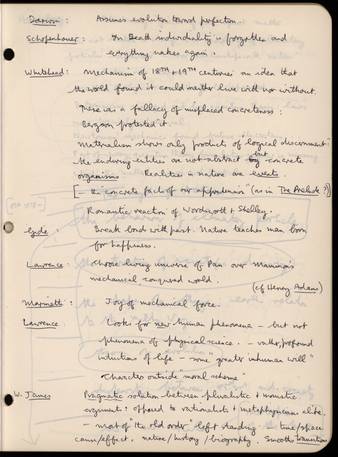 Darwin : Assumes evolution toward perfection.
Schopenhauer : In Death individuality is forgotten and
everything wakes again.
Whitehead : Mechanism of 18TH + 19TH centuries an idea that
the world found it could neither live with nor without.
There is a fallacy of misplaced concreteness :
Bergson protested it.
Materialism shows only products of logical discernment
The enduring entities are not abstract but concrete
organisms Realities in nature are events.
[ - The concrete fact of our apprehension (as in The Prelude?)]
Romantic reaction of Wordsworth + Shelley.
Gide : Break bond with past. Nature teaches man born
for happiness.
Lawrence : Choose living universe of Pan over Man's
mechanical conquered world.
(cf Henry Adams)
Marinetti : Joy of mechanical force.
Lawrence : Looks for new human phenomena - but not
phenomena of physical science. - rather, profound
intuitions of life - some "greater inhuman will"
Character outside "moral scheme"
W. James Pragmatic solution between pluralistic + monistic
argument : opposed to rationalists + metaphysicians alike.
- most of "the old order" left standing - time/space
cause/effect. native/history/biography. Smooths transition